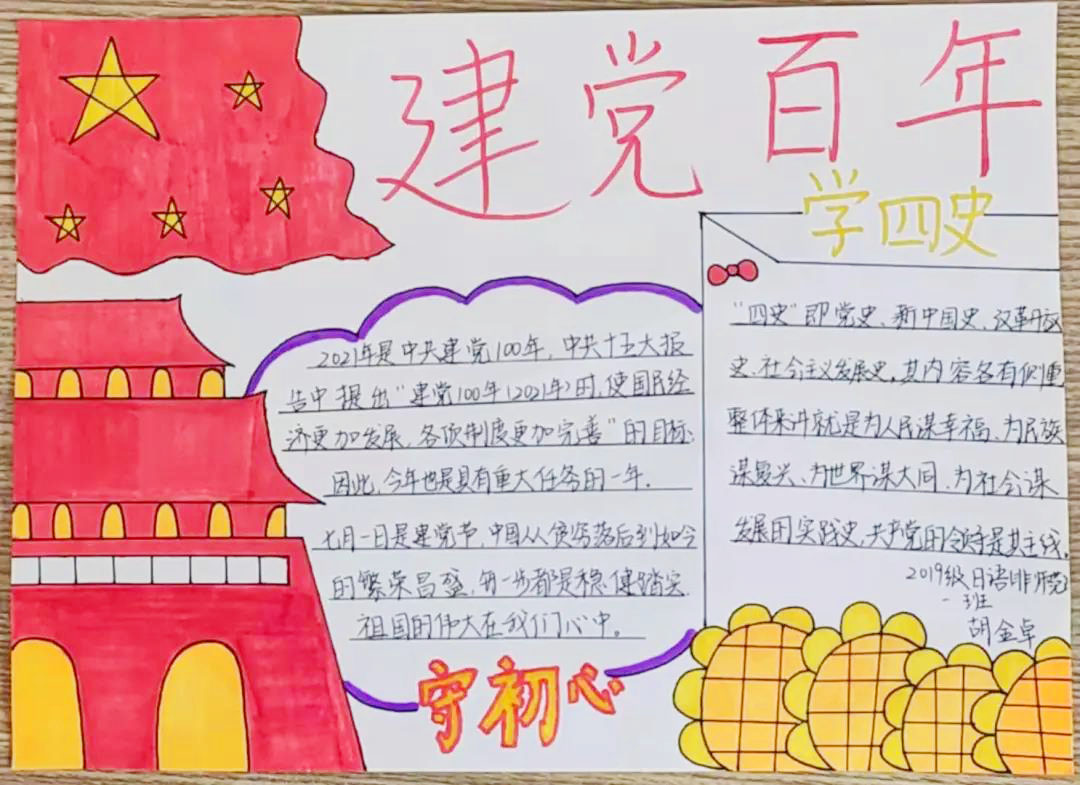 建党百年
学四史
2021年是中共建党100年，中共十五大报
告中提出“建党100年（2021年）时，使国民经
济更加发展，各项制度更加完善”的目标.
因此，今年也是具有重大任务的一年.
七月一日是建党节，中国从贫穷落后到如今
的繁荣昌盛，每一步都是稳健踏实.
祖国的伟大在我们心中。
守初心
“四史”即党史、新中国史、改革开放
史、社会主义发展史，其内容各有侧重
整体来讲就是为人民谋幸福、为民族
谋复兴、为世界谋大同、为社会谋
发展的实践史，共产党的领导是其主线，
2019级日语非师范
一班
胡金卓